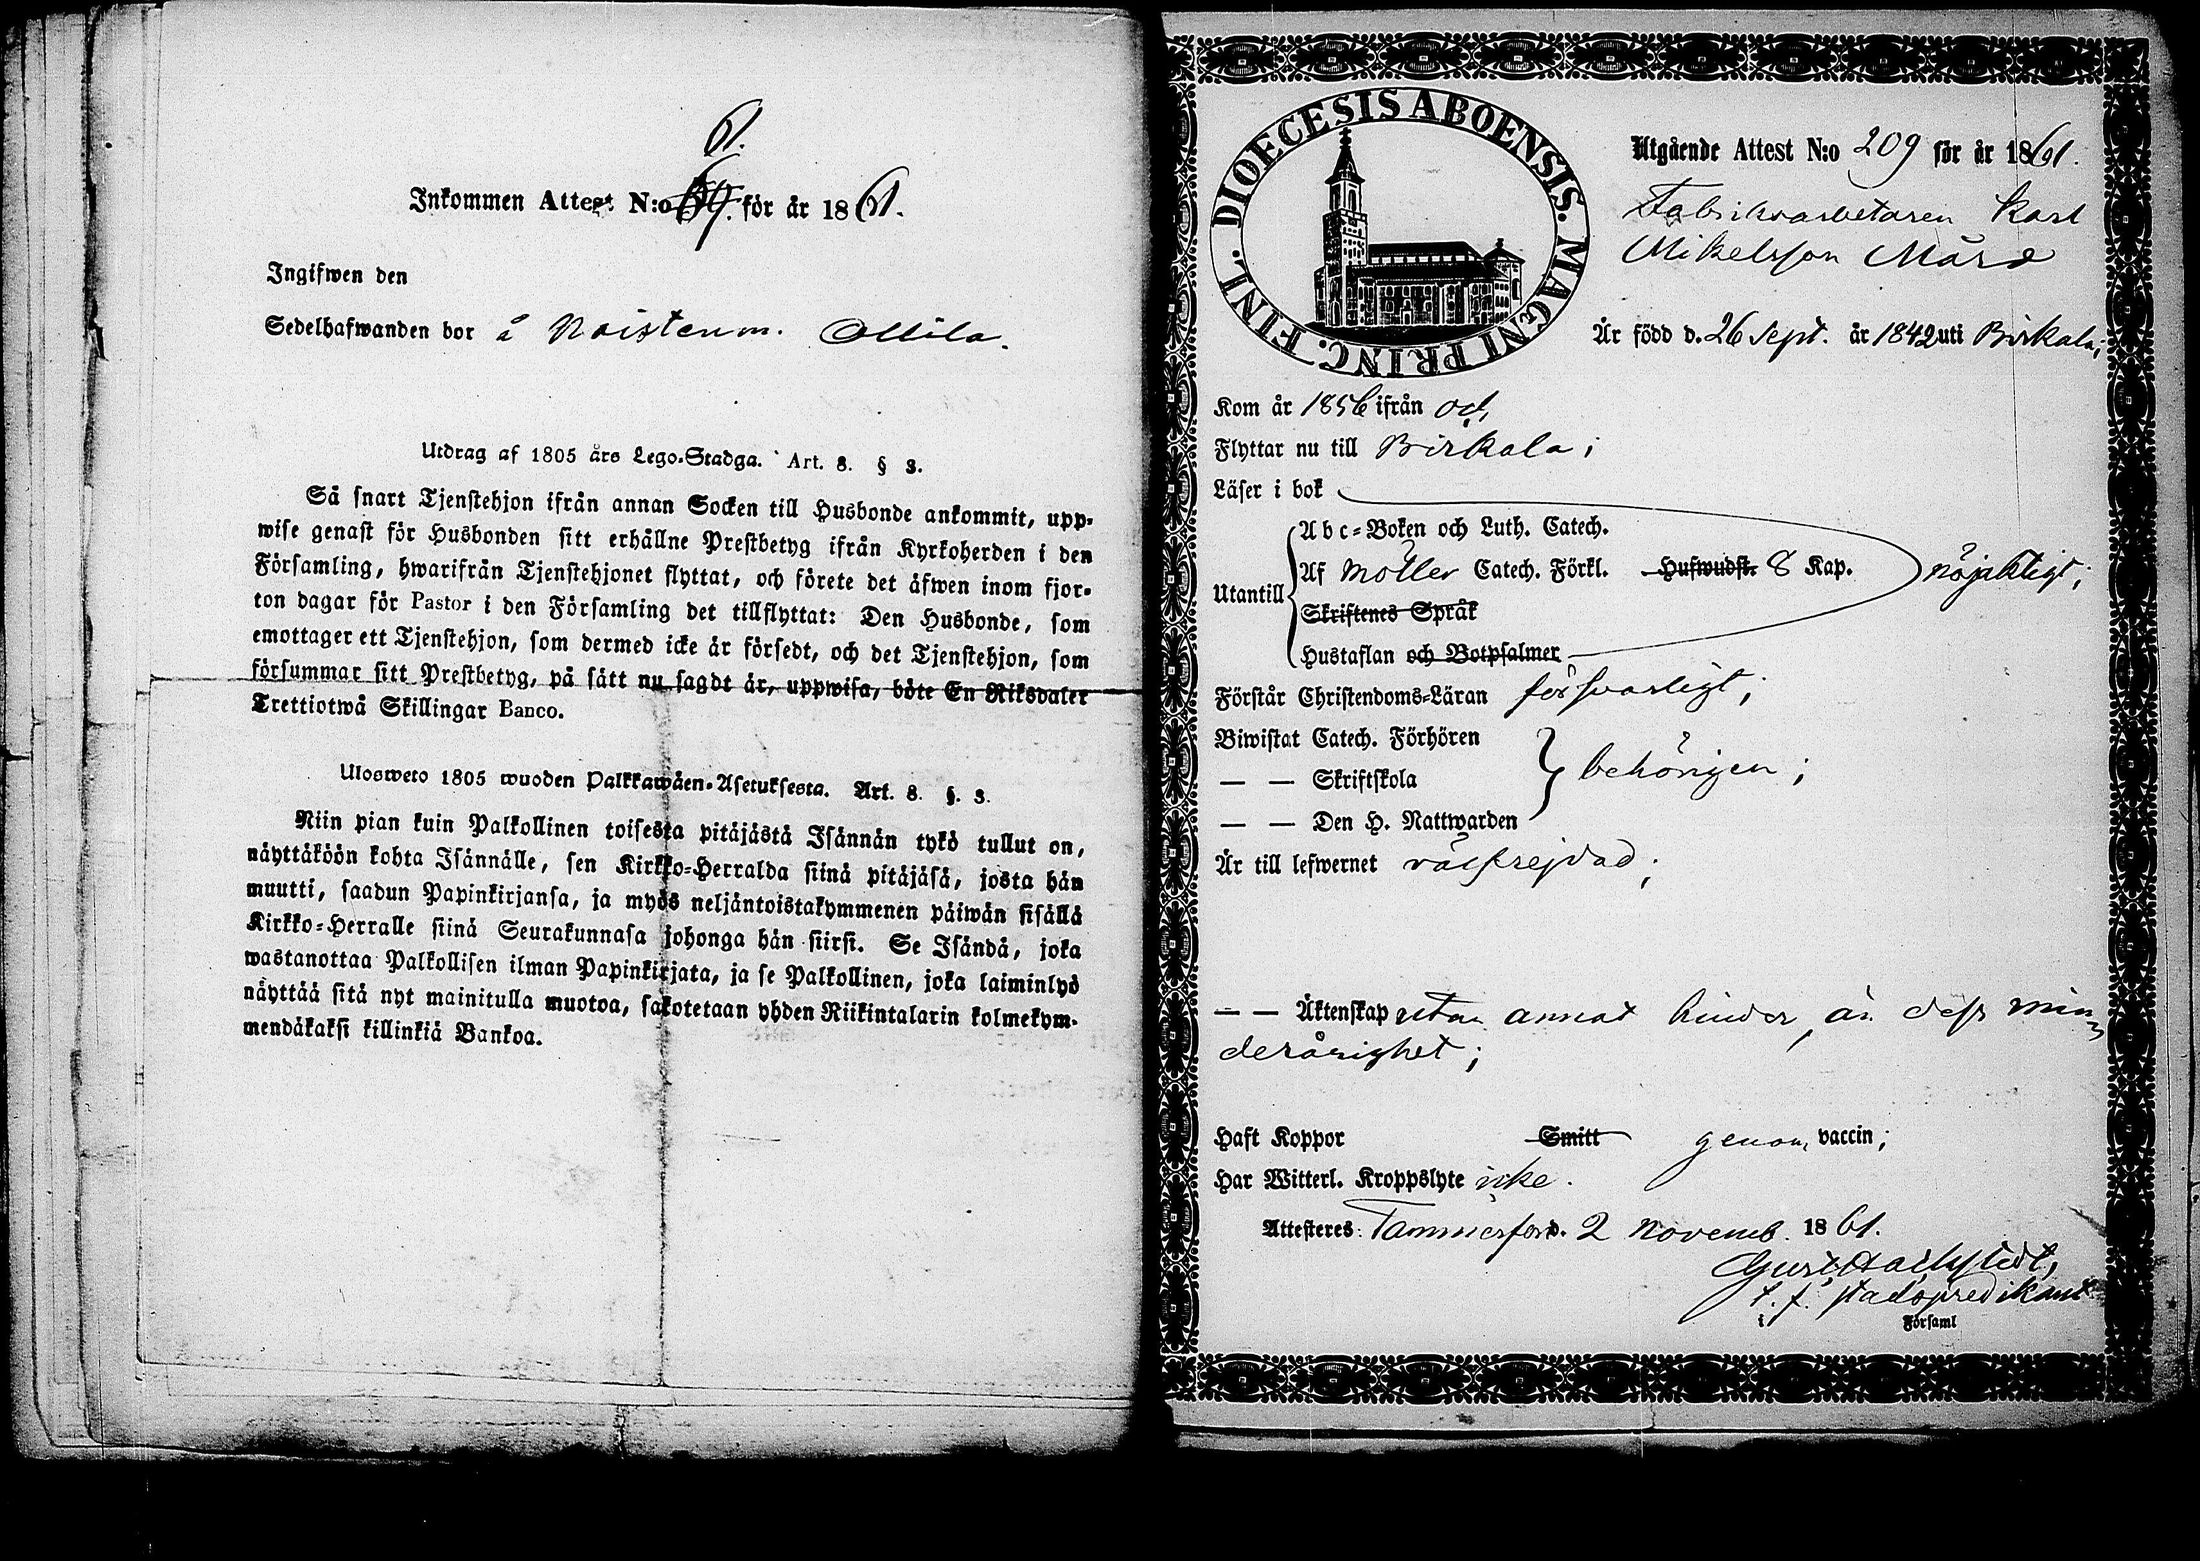 61.
Inkommen Attest N:o 69. för år 1861.
Ingifwen den
Sedelhafwanden bor å Noisterm. Ollila.
Utdrag af 1805 års Lego-Stadga. Art. 8. § 3.
Så snart Tjenstehjon ifrån annan Socken till Husbonde ankommit, upp-
wise genast för Husbonden sitt erhållne Prestbetyg ifrån Kyrkoherden i den
Församling, hwarifrån Tjenstehjonet flyttat, och förete det äfwen inom fjor-
ton dagar för Pastor i den Församling det tillflyttat: Den Husbonde, som
emottager ett Tjenstehjon, som dermed icke är försedt, och det Tjenstehjon, som
försummar sitt Prestbetyg, på sätt nu sagdt är, uppwisa, böte En Riksdaler
Trettiotwå Skillingar Banco.
Ulosweto 1805 wuoden Palkkawäen-Asetuksesta. Art. 8. §. 3.
Niin pian kuin Palkollinen toisesta pitäjästä Isännän tykö tullut on,
näyttäköön kohta Isännälle, sen Kirkko-Herralda siinä pitäjäsä, josta hän
muutti, saadun Papinkirjansa, ja myös neljäntoistakymmenen päiwän sisällä
Kirkko-Herralle siinä Seurakunnasa johonga hän siirsi. Se Isändä, joka
wastanottaa Palkollisen ilman Papinkirjata, ja se Palkollinen, joka laiminlyö
näyttää sitä nyt mainitulla muotoa, sakotetaan yhden Riikintalarin kolmekym-
mendäkaksi killinkiä Bankoa.
FINL. DIOECESIS ABOENSIS. MAGNI PRINC.
Utgående Attest N:o 209 för år 1861.
Fabriksarbetaren Karl
Mikelsson Mård
Är född d. 26 Sept. år 1842 uti Birkala;
Kom år 1856 ifrån och
Flyttar nu till Birkala;
Läser i bok
Abc-Boken och Luth. Catech.
Utantill Af Möller Catech. Förkl. Hufwudst. 8 Kap. nöjaktigt;
Skriftenes Språk
Hustaflan och Botpsalmer
Förstår Christendoms-Läran försvarligt;
Biwistat Catech. Förhören
— — Skriftskola behörigen;
— — Den H. Nattwarden
Är till lefwernet välfrejdad;
— — Äktenskap utan annat hinder, än dess min
derårighet;
Haft Koppor Smitt genom vaccin;
Har Witterl. Kroppslyte icke.
Attesteres: Tammerfors d. 2 Novemb. 1861.
t. f. stadspredikant
i Församl